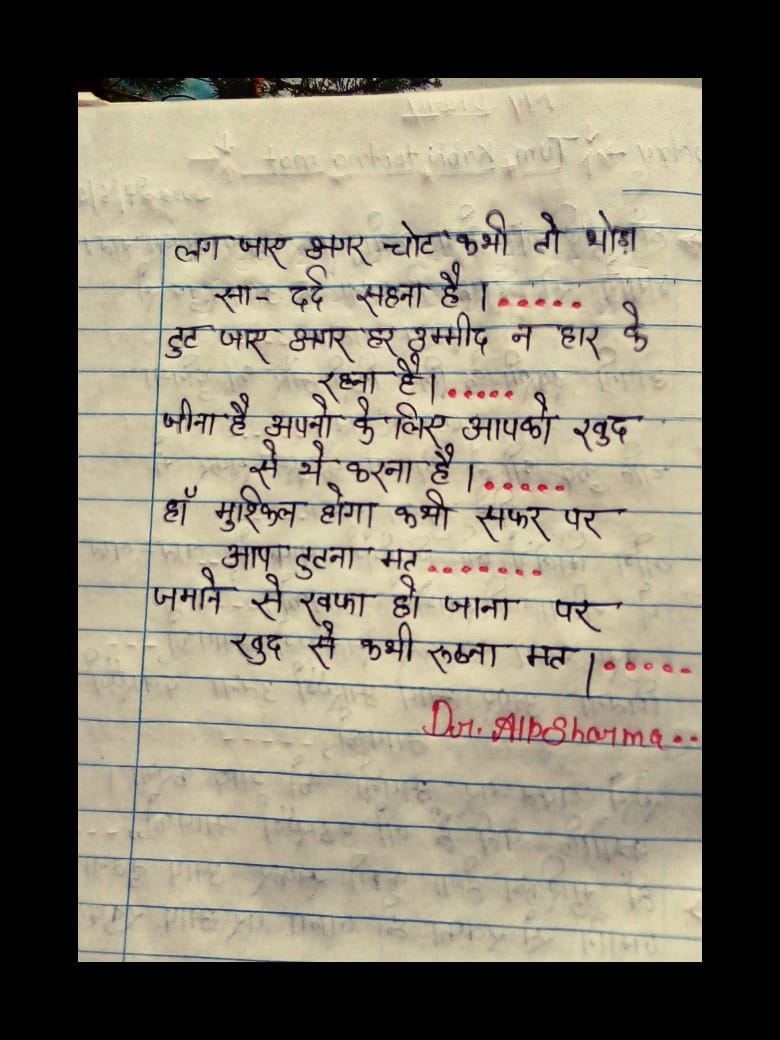 लग जाए अगर चोट कभी तो थोड़ा
सा- दर्द सहना है।.....
टुट जाए अगर हर उम्मीद न हार के
रहना है।.....
जीना है अपनो के लिए आपको खुद
से ये करना है।.....
हाँ मुश्किल होगा कभी सफर पर
आप टुटना मत.......
जमाने से खफा हो जाना पर
खुद से कभी रूठना मत।.....
Dr. Alp Sharma..